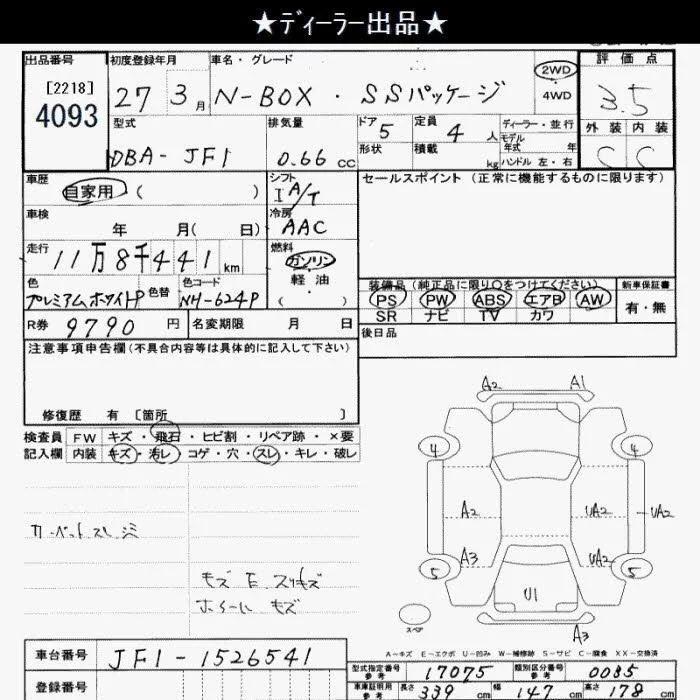 ★ディーラー出品★
出品番号 初度登録年月 車名・グレード 評価点
[2218]
4093
27 3月 N-BOX・SSパッケージ 2WD 3.5
4WD
外装 内装
型式 排気量 ドア 定員 ディーラー・並行
5 4人 モデル年式 年
DBA-JF1 0.66cc 形状 積載 kg ハンドル 左・右 C C
車歴 自家用 ( ) シフト セールスポイント (正常に機能するものに限ります)
IA/T
車検 年 月( 日) 冷房 AAC
走行 11万8千441km 燃料 ガソリン
軽油
( )
色 色替 色コード 装備品(純正品に限り○をつけてください) 新車保証書
プレミアムホワイトP NH-624P PS PW ABS エアB AW 有・無
SR ナビ TV カワ
R券 9790円 名変期限 月 日 後日品
注意事項申告欄(不具合内容等は具体的に記入して下さい)
修復歴 有 [箇所 ]
検査員 FW キズ・飛石・ヒビ割・リペア跡・×要
記入欄 内装 キズ・汚レ・コゲ・穴・スレ・キレ・破レ
A2 A1
4 4
A2 UA2 UA2
A3 UA2
5 5
U1
A3
スペア
カーペットスレシミ
モズ E スリキズ
ホイール キズ
A-キズ E-エクボ U-凹み W-補修跡 S-サビ C-腐食 XX-交換済
車台番号 JF1-1526541
登録番号
型式指定番号 参考 17075 類別区分番号 参考 0085
車庫証明用 参考 長さ 339cm 幅 147cm 高さ 178cm